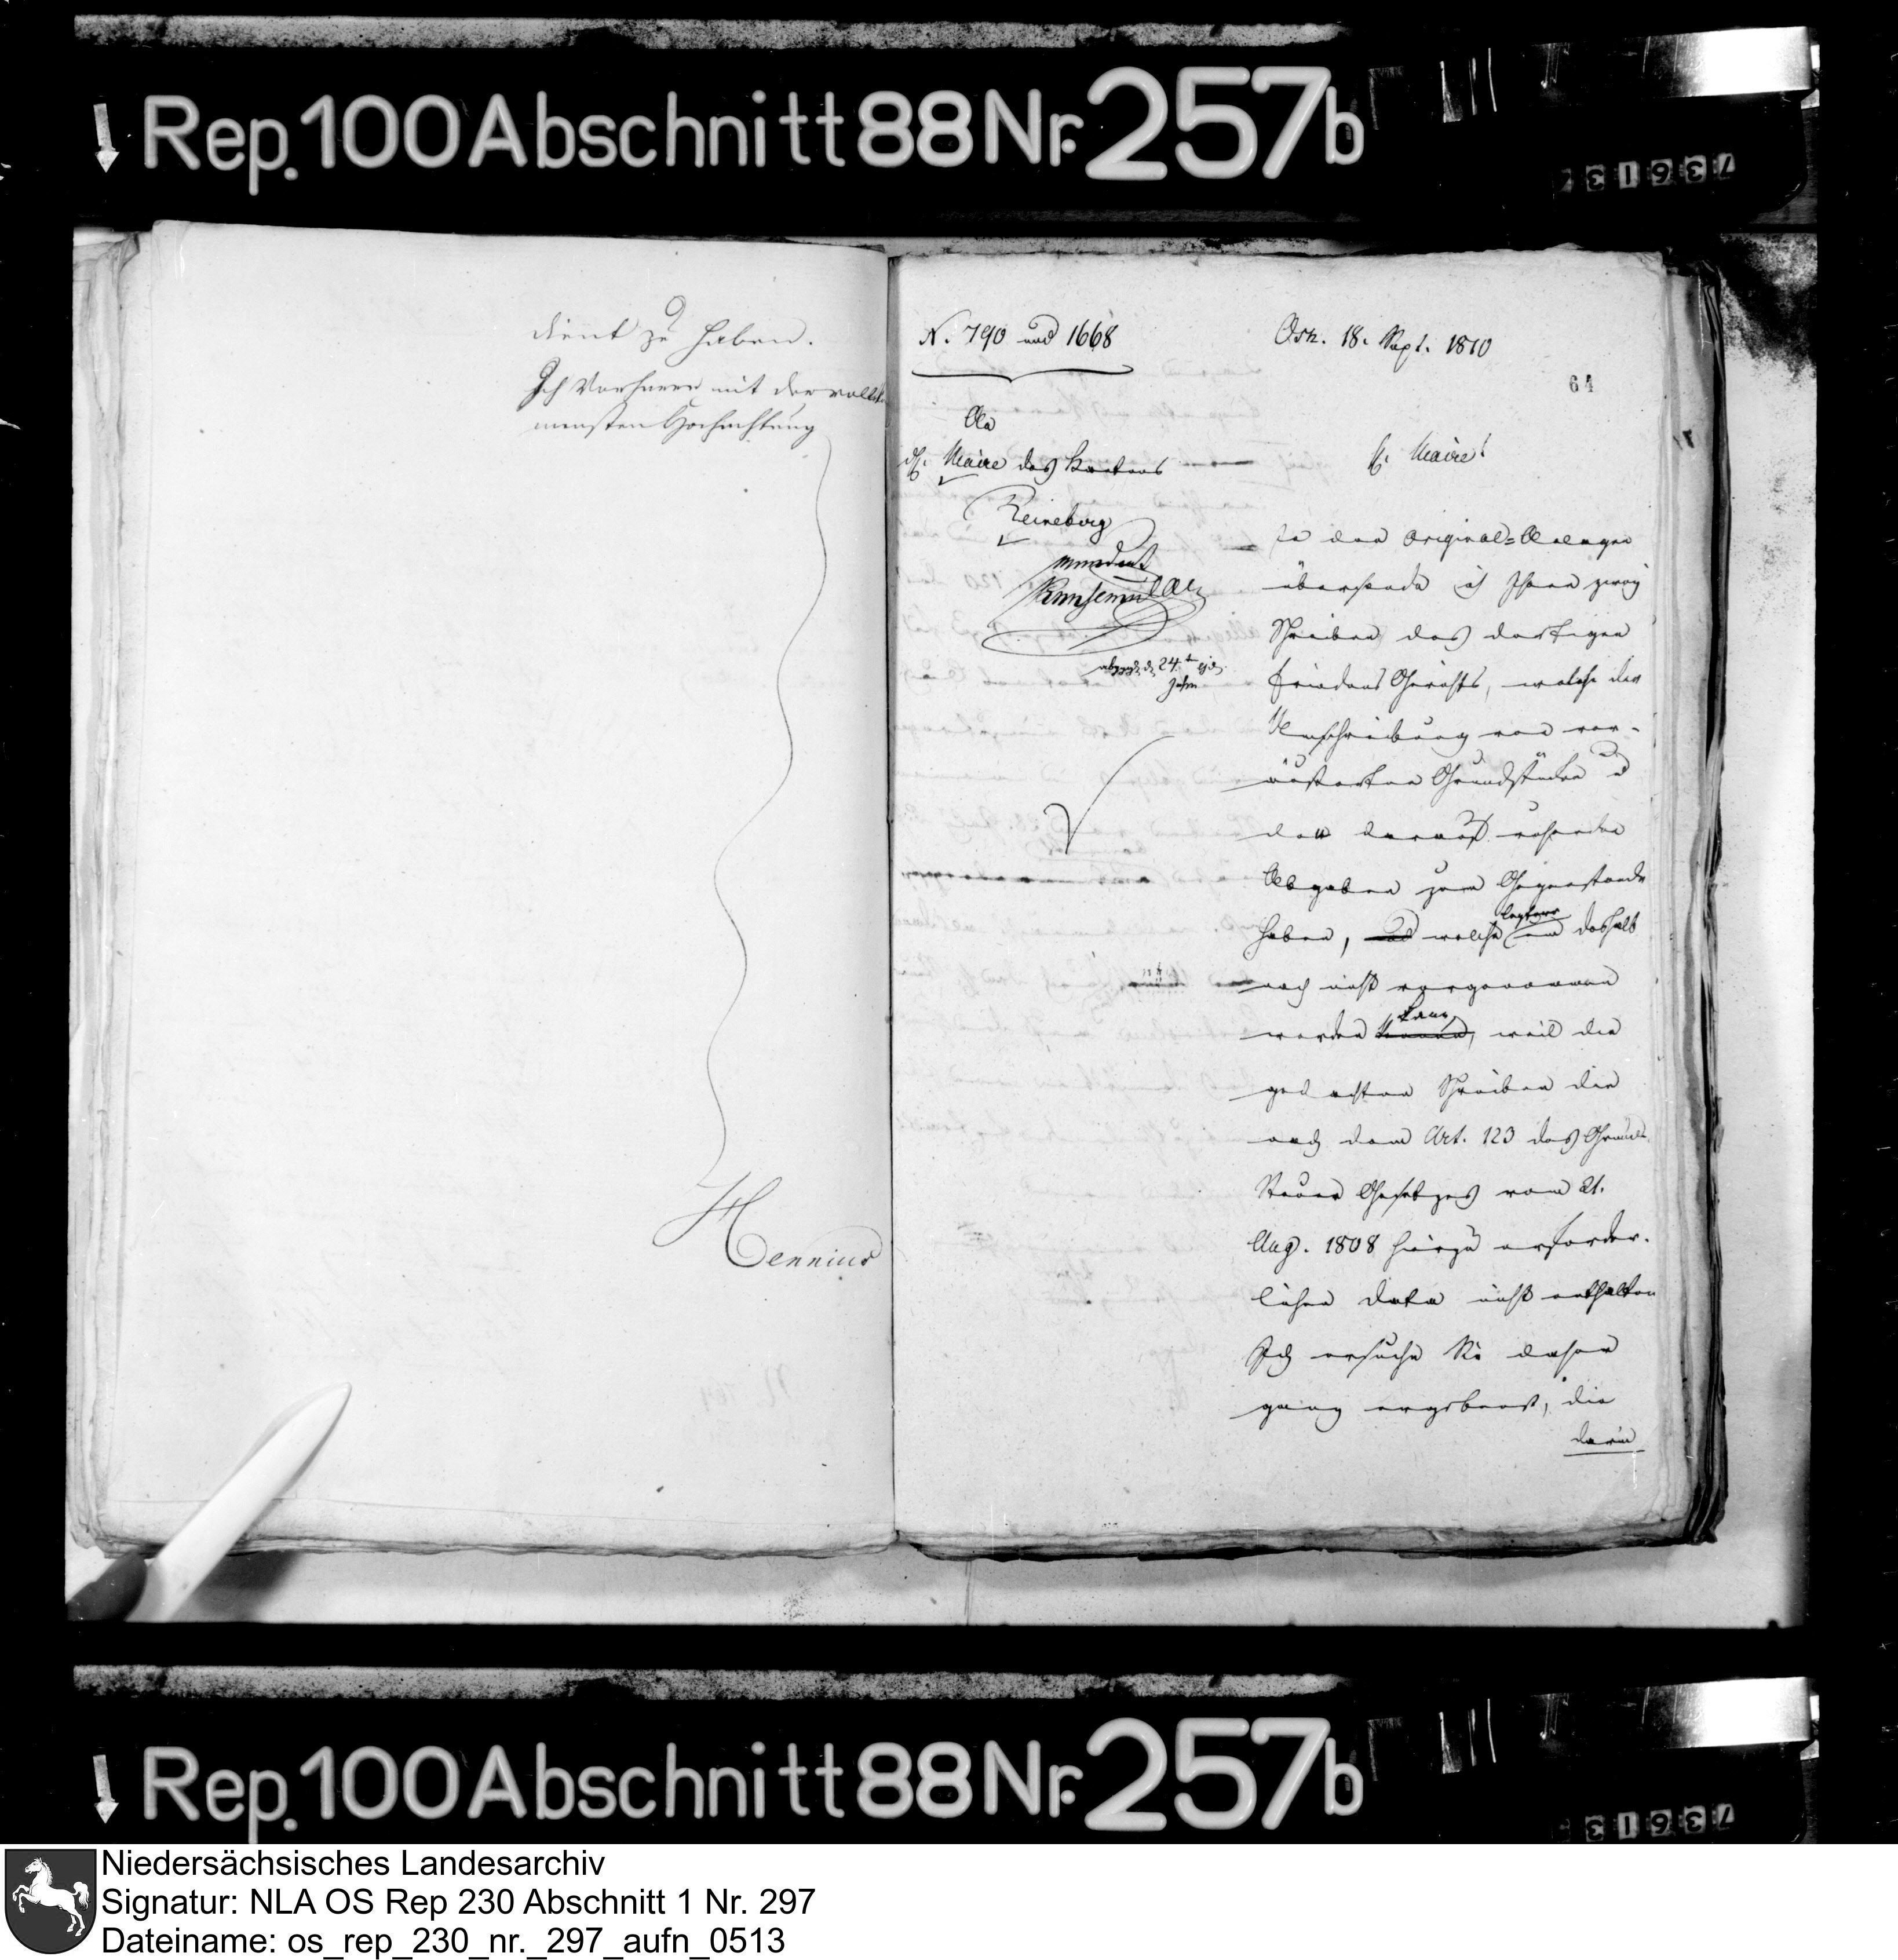 Rep. 100 Abschnitt 88 Nr. 257b
73613
dient zu haben.
Ich verharre mit der vollkom
mensten Hochachtung
Hennius
N. 790 und 1668
Osn. 18. Sept. 1810
64
An
H. Maire des Kantons
Reineberg
mundirt
24.
H. Maire!
In den Original-Anlagen
übersende ich Ihnen zwey
Schreiben des dortigen
Friedens Gerichts, welche die
Umschreibung von ver-
äußerten Grundstücken u
den darauf ruhenden
Abgaben zum Gegenstande
haben, und welche letztere deshalb
noch nicht vorgenommen
werden kann, weil die
gedachten Schreiben die
nach dem Art. 123 des Grund
Steuer Gesetzes vom 21.
Aug. 1808 hierzu erforder-
lichen Data nicht enthalten
Ich ersuche Sie daher
ganz ergebenst, die
darin
Rep. 100 Abschnitt 88 Nr. 257b
73613
Niedersächsisches Landesarchiv
Signatur: NLA OS Rep 230 Abschnitt 1 Nr. 297
Dateiname: os_rep_230_nr._297_aufn_0513